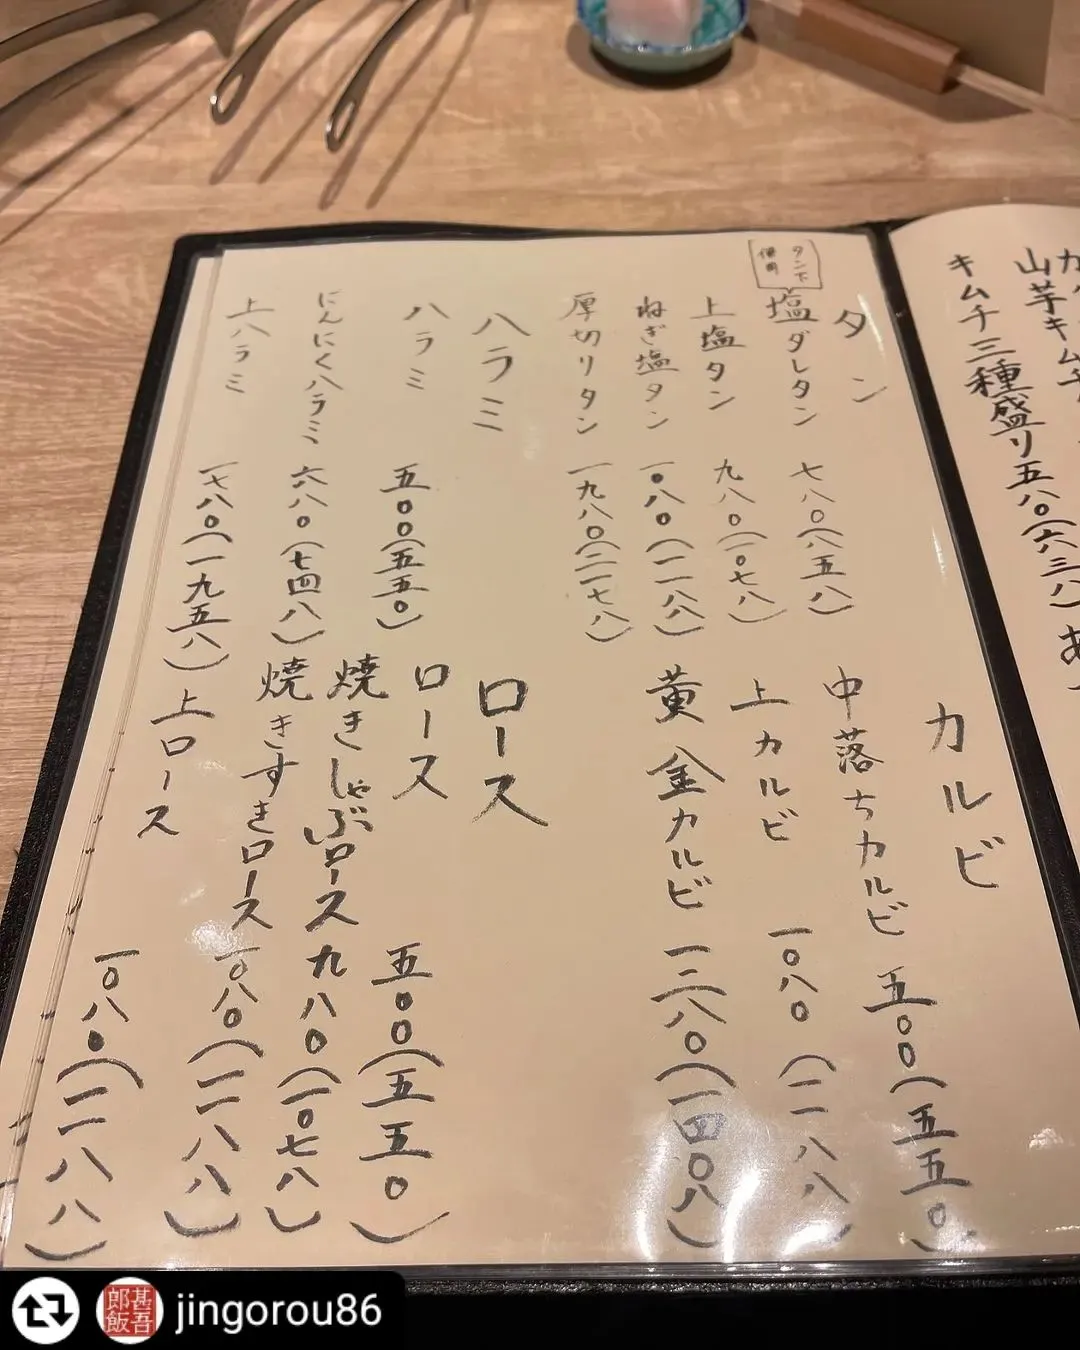 山芋キムチ
キムチ三種盛り 五八〇(六三八)
タン
タン下使用
塩ダレタン 七八〇(八五八)
上塩タン 九八〇(一〇七八)
ねぎ塩タン 一〇八〇(一一八八)
厚切りタン 一九八〇(二一七八)
ハラミ
ハラミ 五〇〇(五五〇)
にんにくハラミ 六八〇(七四八)
上ハラミ 一七八〇(一九五八)
カルビ
中落ちカルビ 五〇〇(五五〇)
上カルビ 一〇八〇(一一八八)
黄金カルビ 一二八〇(一四〇八)
ロース
ロース 五〇〇(五五〇)
焼きしゃぶロース 九八〇(一〇七八)
焼きすきロース 一〇八〇(一一八八)
上ロース 一〇八〇(一一八八)
甚吾郎飯
jingorou86